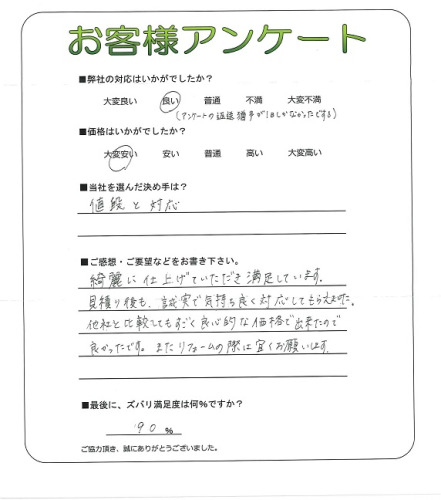 お客様アンケート
■弊社の対応はいかがでしたか?
大変良い 良い 普通 不満 大変不満
(アンケートの返送猶予が1日しかなかったですよ)
■価格はいかがでしたか?
大変安い 安い 普通 高い 大変高い
■当社を選んだ決め手は?
値段と対応
■ご感想・ご要望などをお書き下さい。
綺麗に仕上げていただき満足しています。
見積り後も、誠実で気持ち良く対応してもらえました。
他社と比較してもすごく良心的な価格で出来たので
良かったです。またリフォームの際は宜くお願いします。
■最後に、ズバリ満足度は何%ですか?
90 %
ご協力頂き、誠にありがとうございました。